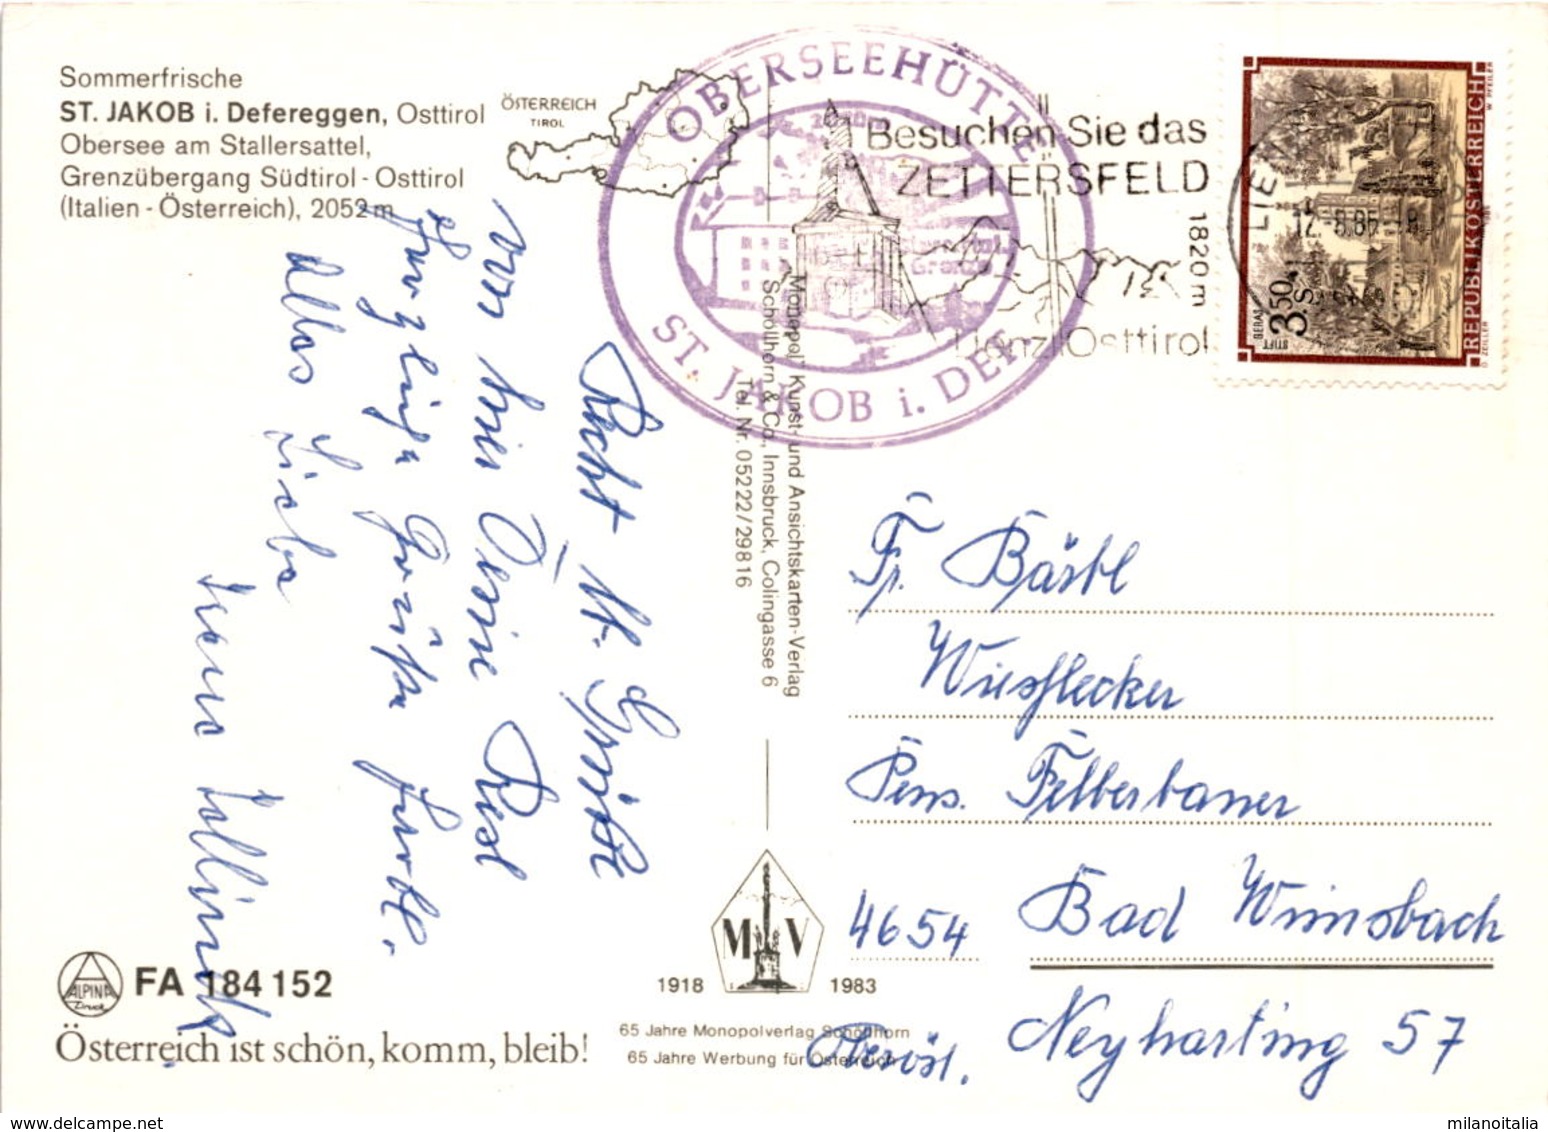 Sommerfrische
ST. JAKOB i. Defereggen, Osttirol
Obersee am Stallersattel,
Grenzübergang Südtirol - Osttirol
(Italien - Österreich), 2052 m
ÖSTERREICH
TIROL
OBERSEEHÜTTE
ST. JAKOB i. DEF.
Besuchen Sie das
ZETTERSFELD
1820 m
Lienz/Osttirol
LIENZ
12.-8.86-
REPUBLIK ÖSTERREICH
3.50 S
STIFT GERAS
W. PFEILER
O. ZEILER
"Monopol" Kunst- und Ansichtskarten-Verlag
Schöllhorn & Co., Innsbruck, Colingasse 6
Tel. Nr. 05222/29816
Recht h. Grüße
von hier Deine Resl
Herzliche Grüße
Alles Liebe
Fr. Bärbl
Wiesflecker
Pens. Felberbauer
4654 Bad Wimsbach
Neyharting 57
MV
1918 1983
65 Jahre Monopolverlag Schöllhorn
65 Jahre Werbung für Österreich
ALPINA
Druck
FA 184 152
Österreich ist schön, komm, bleib!
milanoitalia